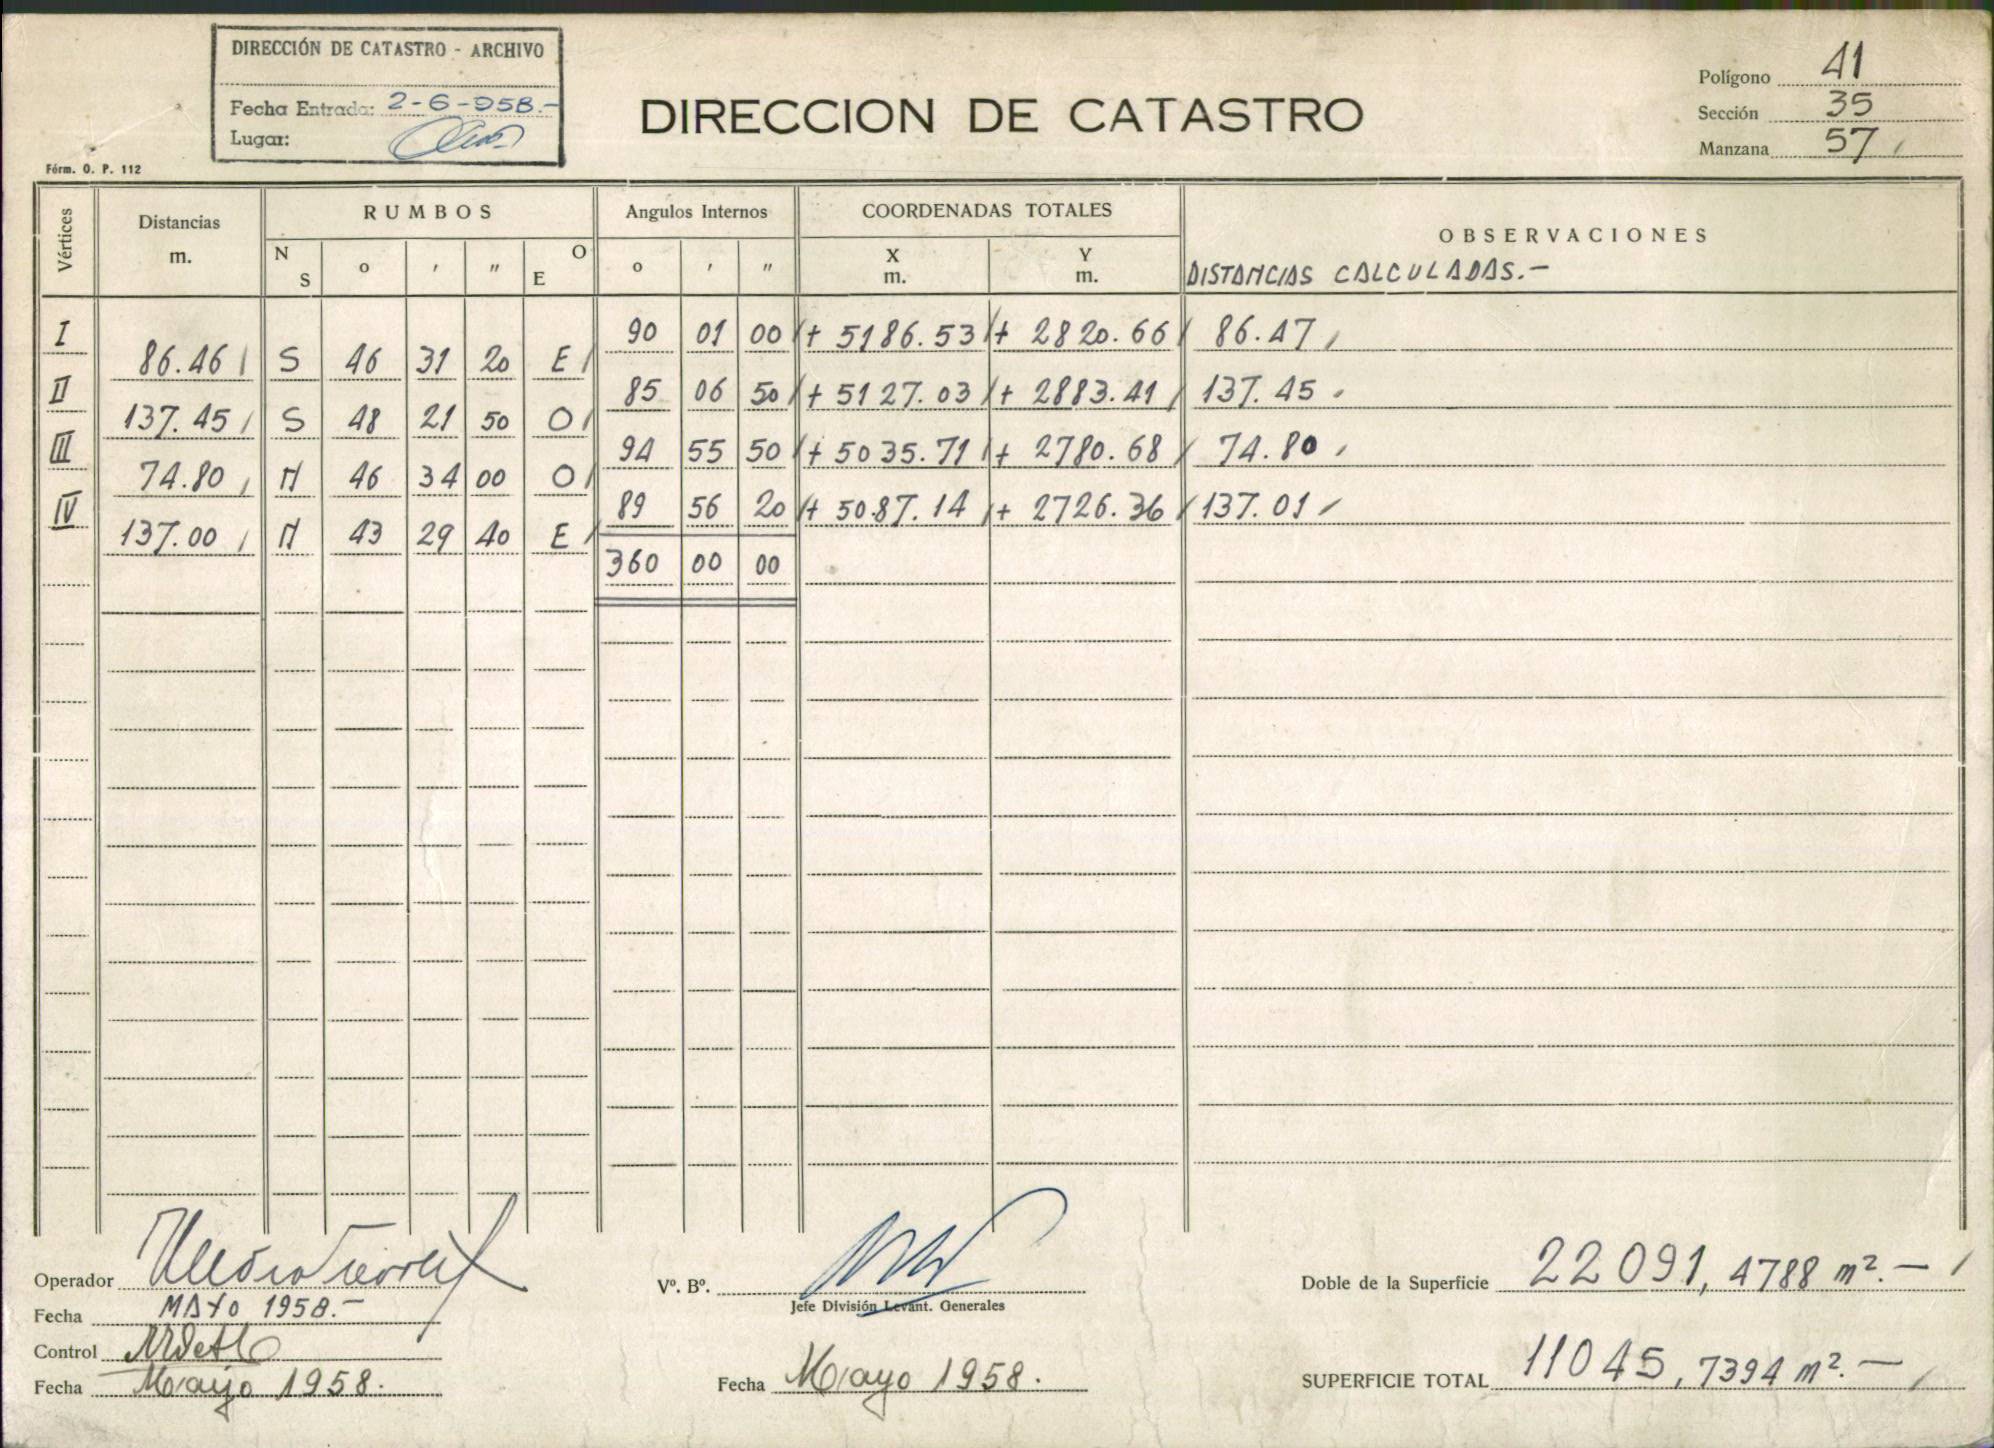 DIRECCIÓN DE CATASTRO - ARCHIVO
Fecha Entrada: 2-6-958.-
Lugar:
DIRECCION DE CATASTRO
Polígono 41
Sección 35
Manzana 57
Fórm. O. P. 112
Vértices Distancias m. RUMBOS Angulos Internos COORDENADAS TOTALES OBSERVACIONES
N S o ' " O E o ' " X m. Y m. DISTANCIAS CALCULADAS.-
I 90 01 00 + 5186.53 + 2820.66 86.47
86.46 S 46 31 20 E
II 85 06 50 + 5127.03 + 2883.41 137.45
137.45 S 48 21 50 O
III 94 55 50 + 5035.71 + 2780.68 74.80
74.80 N 46 34 00 O
IV 89 56 20 + 5087.14 + 2726.36 137.01
137.00 N 43 29 40 E
360 00 00
Operador
Fecha MAYO 1958.-
Control
Fecha Mayo 1958.
Vº. Bº.
Jefe División Levant. Generales
Fecha Mayo 1958.
Doble de la Superficie 22091,4788 m².-
SUPERFICIE TOTAL 11045,7394 m².-